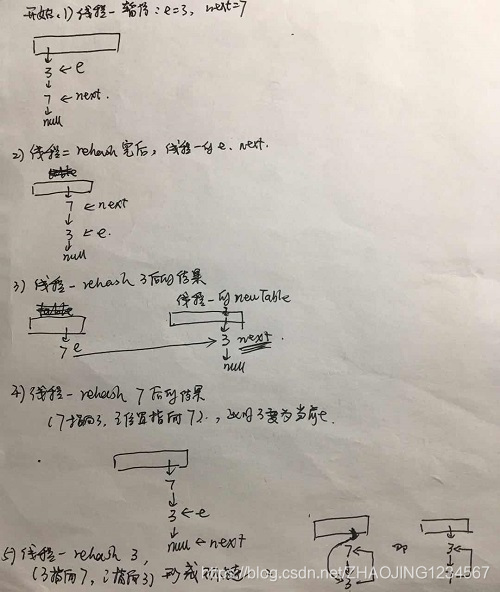 开始:1) 线程一暂停: e=3, next=7
3 ← e
7 ← next.
null
2) 线程二rehash完后, 线程一的e. next.
7 ← next
3 ← e.
null
3) 线程一 rehash 3后的结果
线程一的newTable
7 e
3 next.
null
4) 线程一 rehash 7后的结果
(7指向3, i位置指向7), 此时3变为当前e.
7
3 ← e
null ← next
5) 线程一 rehash 3,
(3指向7, i指向3) 形成
7
3
即
3
7
http://blog.csdn.net/ZHAOJING1234567